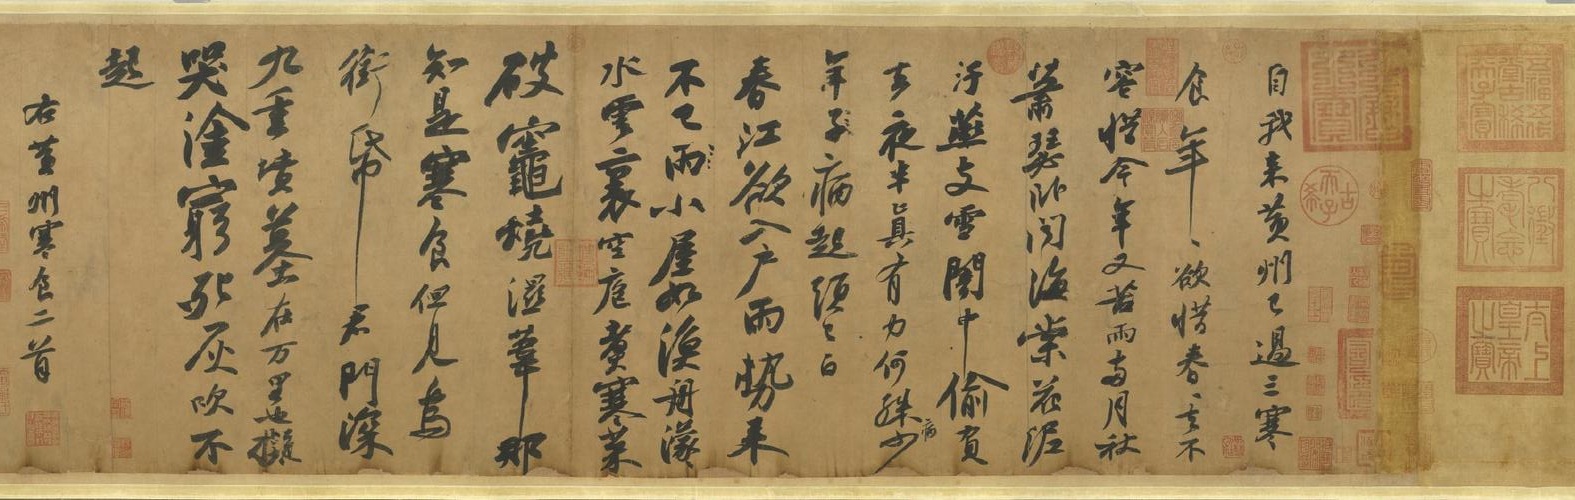 自我来黄州已過三寒
食年年欲惜春春去不
容惜今年又苦雨兩月秋
蕭瑟卧聞海棠花泥
汙燕支雪闇中偷負
去夜半真有力何殊少
年子病起頭已白
春江欲入戶雨勢来
不已雨小屋如漁舟濛濛
水雲裏空庖煮寒菜
破竈燒濕葦那
知是寒食但見烏
銜帋君門深
九重墳墓在万里也擬
哭塗窮死灰吹不
起
右黄州寒食二首